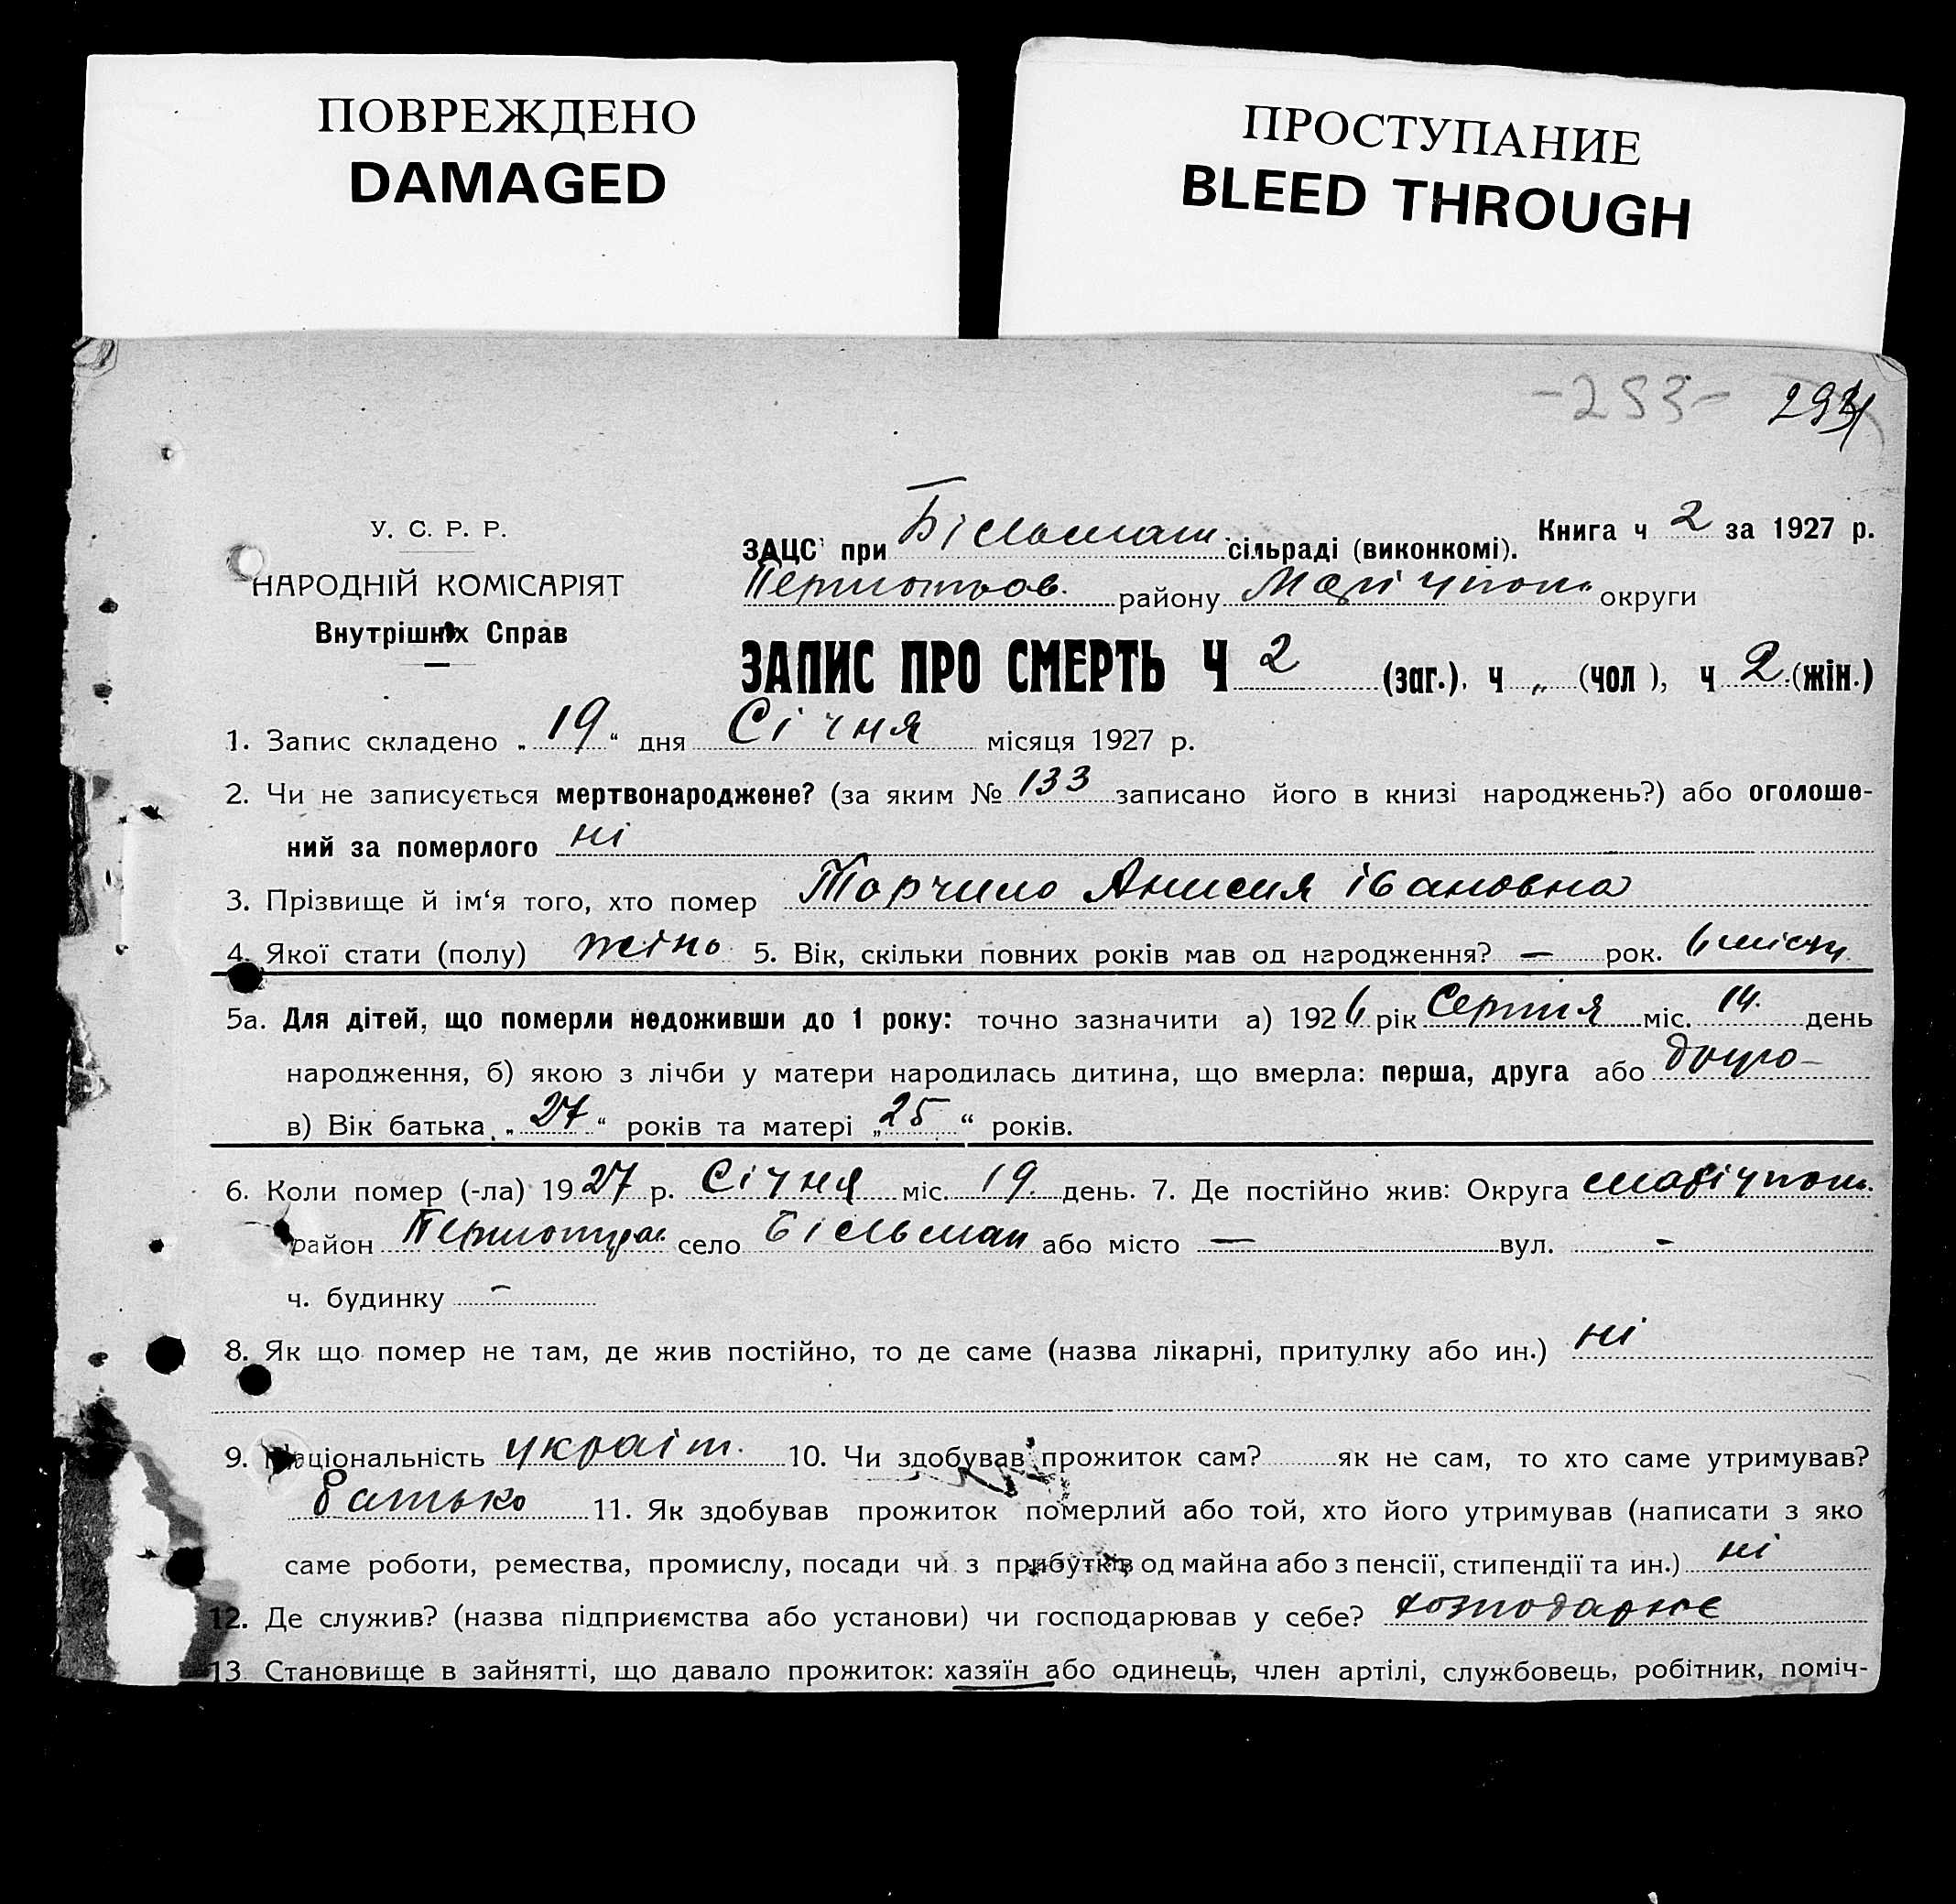 ПОВРЕЖДЕНО
DAMAGED
ПРОСТУПАНИЕ
BLEED THROUGH
-253-
У. С. Р. Р.
НАРОДНІЙ КОМІСАРІЯТ
Внутрішніх Справ
Книга ч 2 за 1927 р.
ЗАЦС при Більмат. сільраді (виконкомі).
району Маріупол. округи
ЗАПИС ПРО СМЕРТЬ Ч 2 (заг.), ч „ (чол), ч 2 (жін.)
1. Запис складено „19“ дня Січня місяця 1927 р.
2. Чи не записується мертвонароджене? (за яким № 133 записано його в книзі народжень?) або оголоше-
ний за померлого ні
3. Прізвище й ім‘я того, хто помер Торчило Анисия івановна
4. Якої стати (полу) жіно 5. Вік, скільки повних років мав од народження? — рок. 6 місяц
5а. Для дітей, що померли недоживши до 1 року: точно зазначити а) 1926 рік Серпня міс. 14. день
народження, б) якою з лічби у матери народилась дитина, що вмерла: перша, друга або друго
в) Вік батька „27“ років та матері „25“ років.
6. Коли помер (-ла) 1927 р. Січня міс. 19. день. 7. Де постійно жив: Округа маріупол.
район село Більман або місто — вул. -
ч. будинку -
8. Як що помер не там, де жив постійно, то де саме (назва лікарні, притулку або ин.) ні
9. Національність україн. 10. Чи здобував прожиток сам? як не сам, то хто саме утримував?
батько 11. Як здобував прожиток померлий або той, хто його утримував (написати з яко
саме роботи, ремества, промислу, посади чи з прибутків од майна або з пенсії, стипендії та ин.) ні
12. Де служив? (назва підприємства або установи) чи господарював у себе?
13 Становище в зайнятті, що давало прожиток: хазяїн або одинець, член артілі, службовець, робітник, поміч-